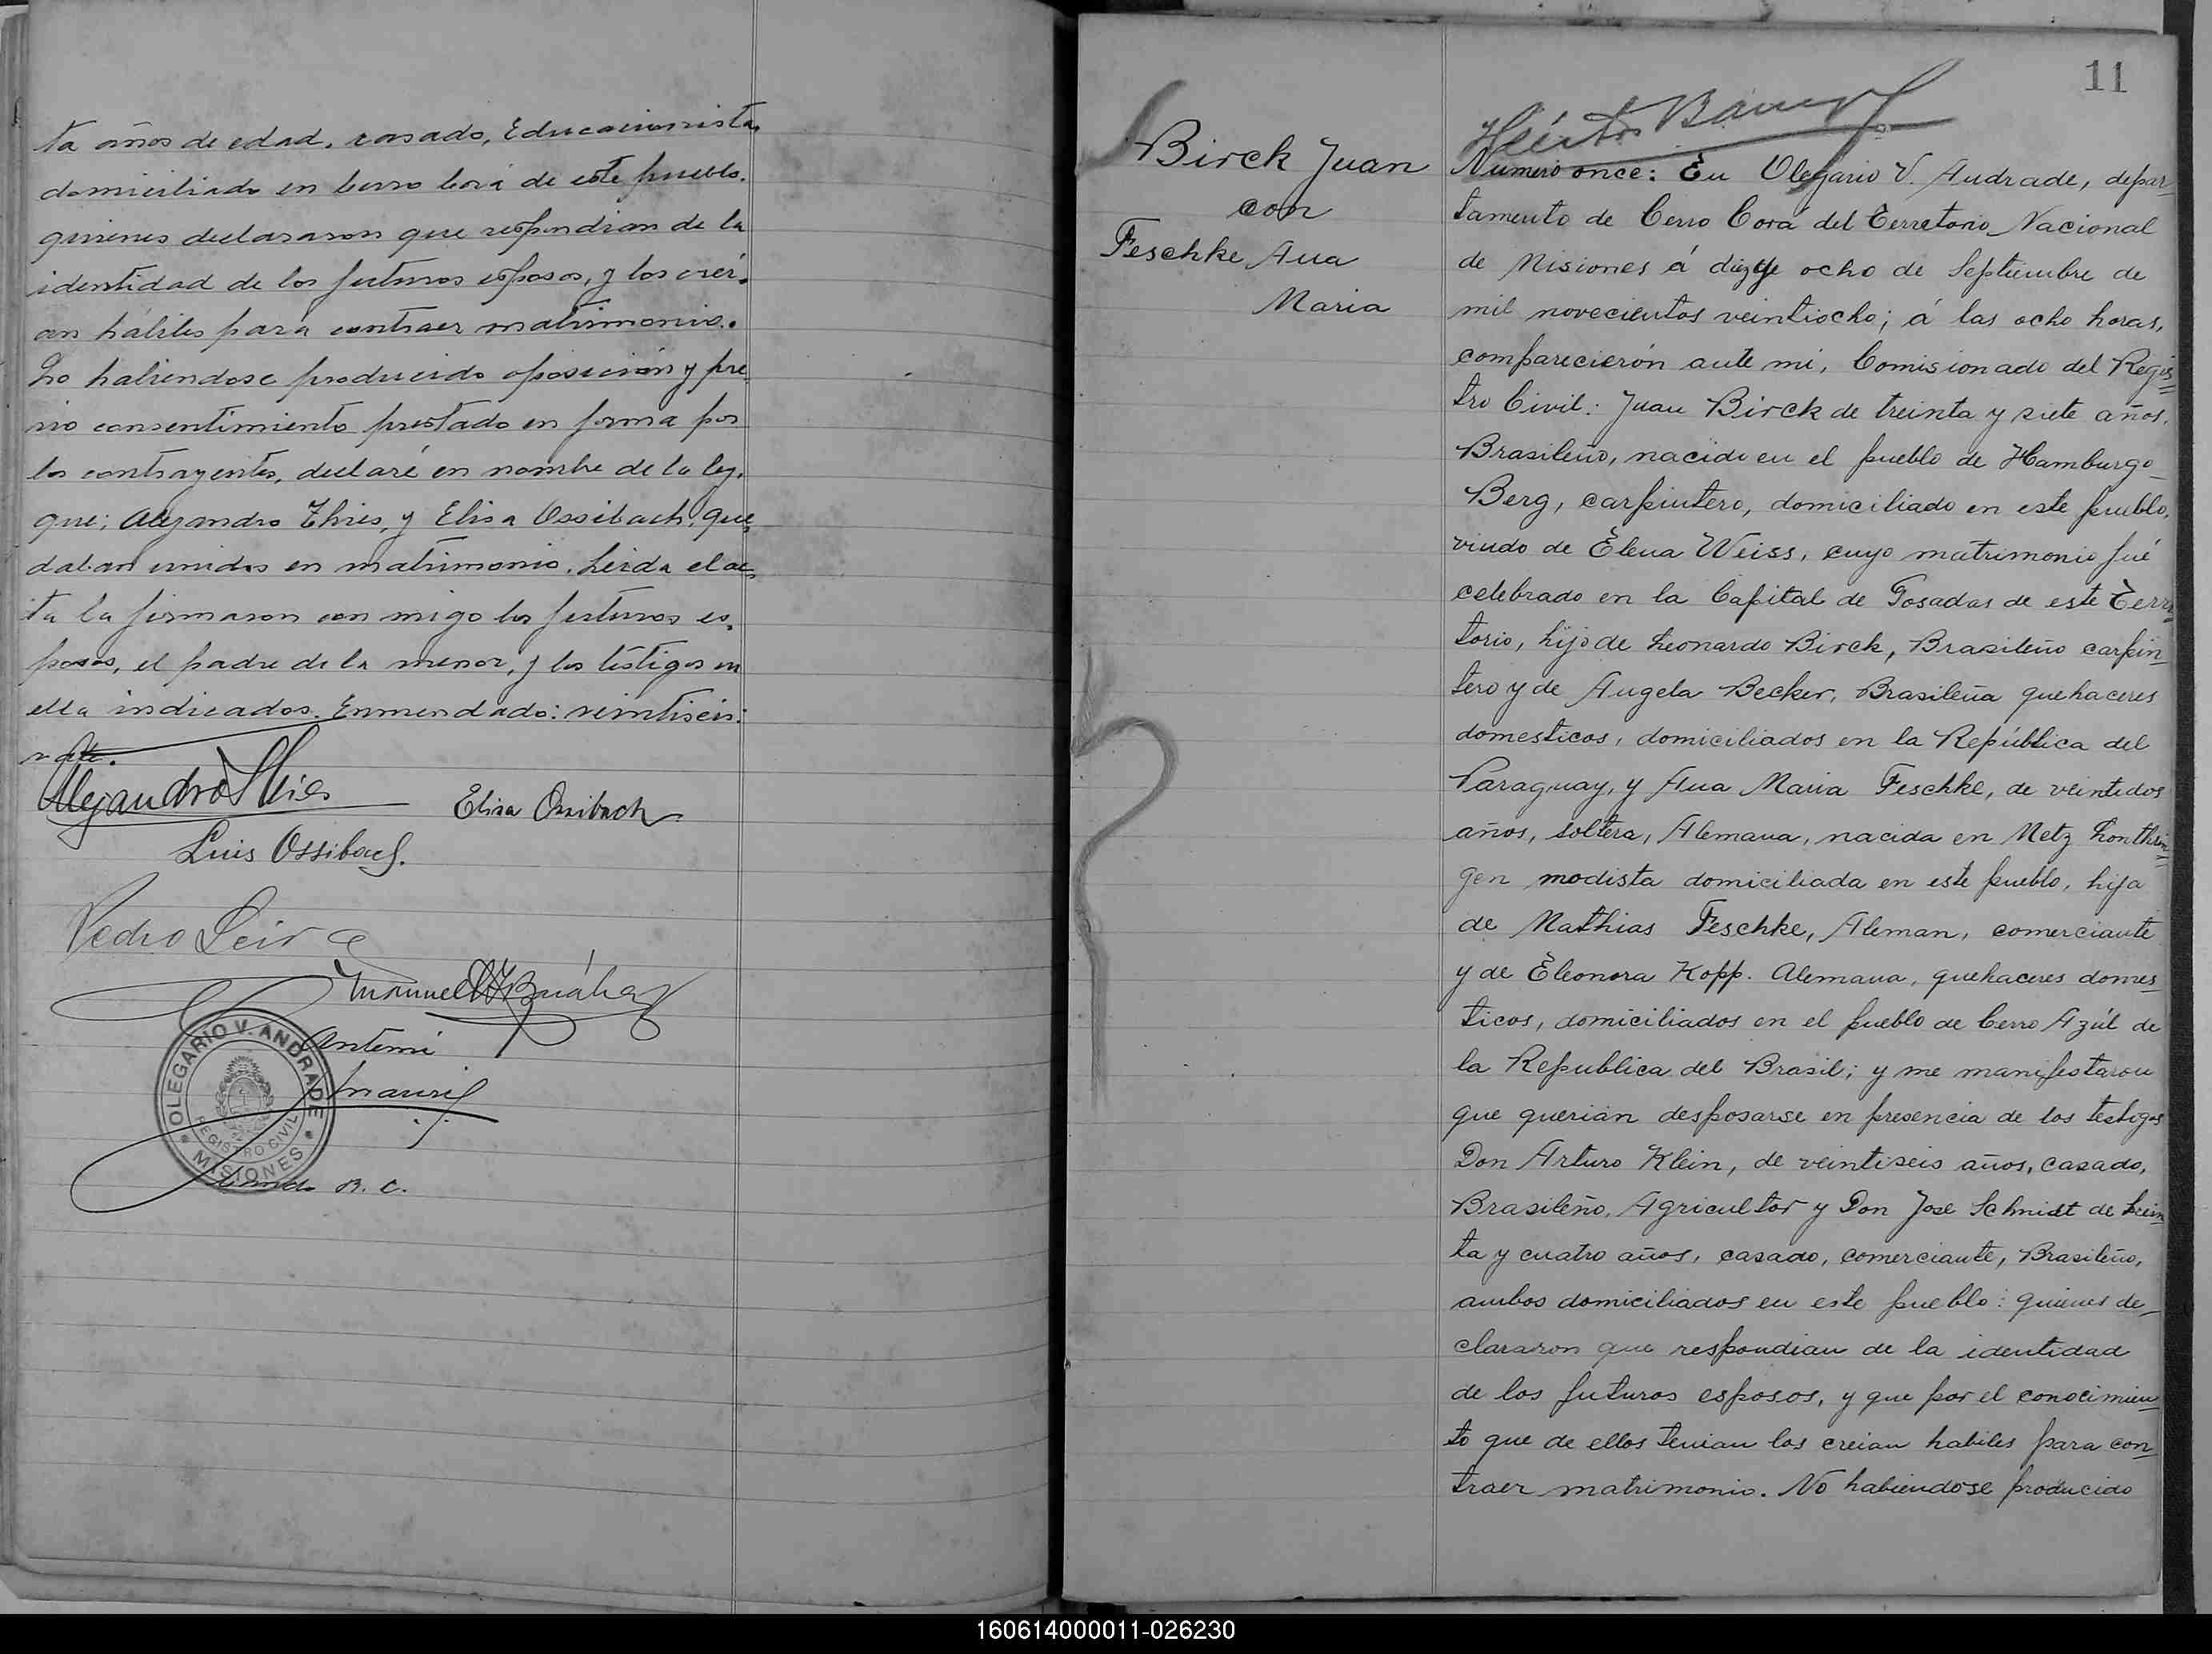 ta años de edad, casado, Educacionista,
domiciliado en Cerro Corá de este pueblo.
quienes declararon que respondian de la
identidad de los futuros esposos, y los creí-
an hábiles para contraer matrimonio.
No habiendose producido oposición y pre-
vio consentimiento prestado en forma por
los contrayentes, declaré en nombre de la ley,
que; Alejandro Thies, y Elisa Ossibach, que-
daban unidos en matrimonio. Leida el ac-
ta la firmaron con migo los futuros es-
posos, el padre de la menor, y los testigos en
ella indicados. Enmendado: veintiseis:
vale.
Alejandro Thies
Elisa Ossibach
Luis Ossibach.
Pedro Leiva
Manuel
Antemi
OLEGARIO V. ANDRADE
REGISTRO CIVIL
MISIONES
R. C.
11
Birck Juan
con
Feschke, Ana
Maria
Numero once: En Olegario V. Andrade, depar-
tamento de Cerro Corá del Terretorio Nacional
de Misiones á diez y ocho de Septiembre de
mil novecientos veintiocho; á las ocho horas,
comparecierón ante mi, Comisionado del Regis-
tro Civil: Juan Birck de treinta y siete años,
Brasileño, nacido en el pueblo de Hamburgo-
Berg, carpintero, domiciliado en este pueblo,
viudo de Elena Weiss, cuyo matrimonio fué
celebrado en la Capital de Posadas de este Terri-
torio, hijo de Leonardo Birck, Brasileño carpin-
tero y de Angela Becker, Brasileña quehaceres
domesticos, domiciliados en la República del
Paraguay, y Ana Maria Feschke, de veintidos
años, soltera, Alemana, nacida en Metz Lonthrin-
gen modista domiciliada en este pueblo, hija
de Mathias Feschke, Aleman, comerciante
y de Eleonora Kopp. Alemana, quehaceres domes-
ticos, domiciliados en el pueblo de Cerro Azúl de
la Republica del Brasil; y me manifestaron
que querian desposarse en presencia de los testigos
Don Arturo Klein, de veintiseis años, casado,
Brasileño, Agricultor y Don José Schmidt de trein-
ta y cuatro años, casado, comerciante, Brasileño,
ambos domiciliados en este pueblo: quienes de-
clararon que respondian de la identidad
de los futuros esposos, y que por el conocimien-
to que de ellos tenian los creian habiles para con-
traer matrimonio. No habiendose producido
160614000011-026230